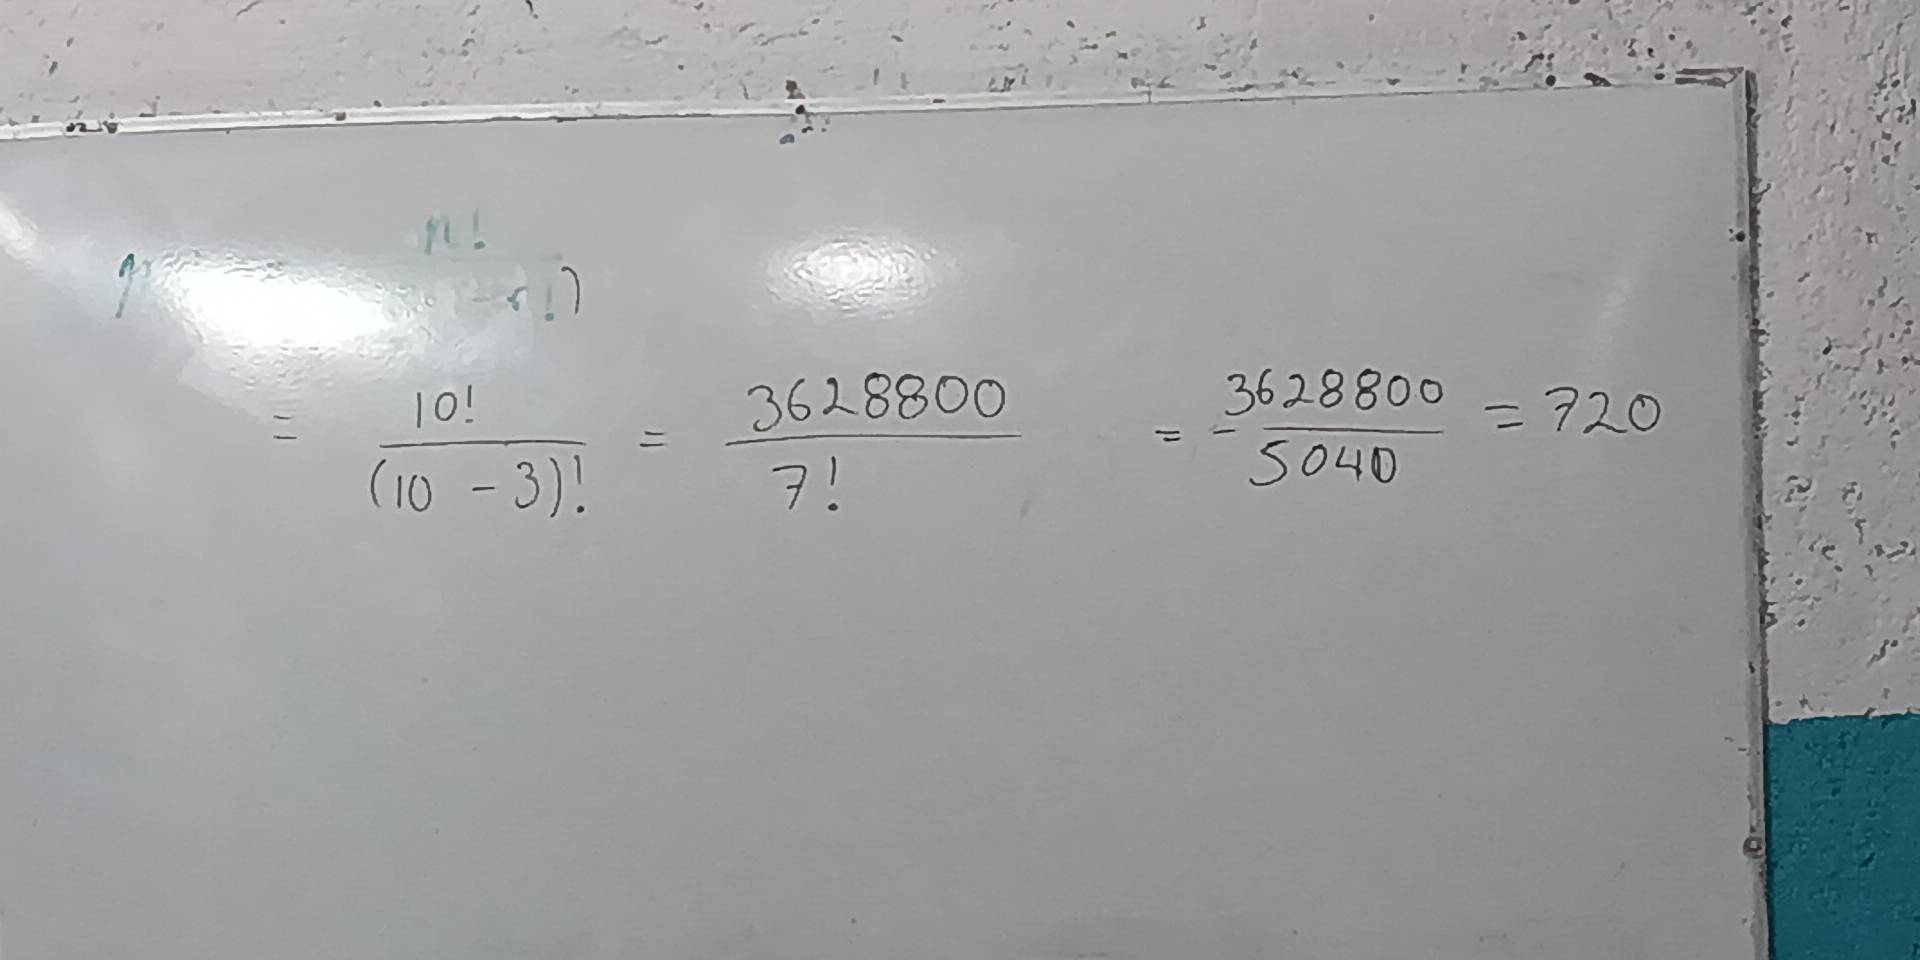 n!
-r!)
= 10! / (10 - 3)! = 3628800 / 7! = - 3628800 / 5040 = 720